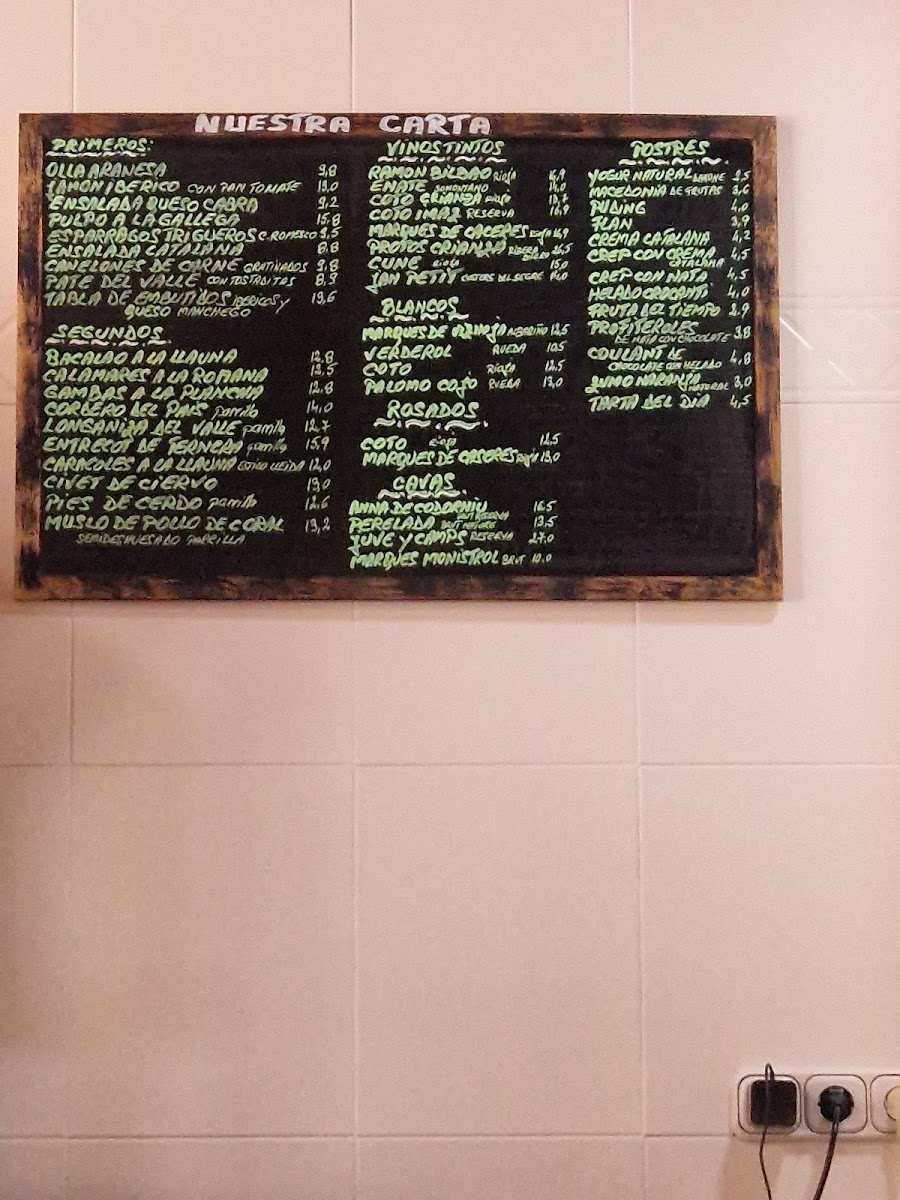 NUESTRA CARTA
PRIMEROS:
OLLA ARANESA 9,8
JAMON IBERICO CON PAN TOMATE 19,0
ENSALADA QUESO CABRA 9,2
PULPO A LA GALLEGA 15,8
ESPARRAGOS TRIGUEROS C. ROMESCO 9,5
ENSALADA CATALANA 8,8
CANELONES DE CARNE GRATINADOS 9,8
PATE DEL VALLE CON TOSTADITAS 8,9
TABLA DE EMBUTIDOS IBERICOS Y 19,6
QUESO MANCHEGO
SEGUNDOS
BACALAO A LA LLAUNA 12,8
CALAMARES A LA ROMANA 12,5
GAMBAS A LA PLANCHA 12,8
CORDERO DEL PAIS parrilla 14,0
LONGANIZA DEL VALLE parrilla 12,7
ENTRECOT DE TERNERA parrilla 15,9
CARACOLES A LA LLAUNA ESTILO LLEIDA 12,0
CIVET DE CIERVO 19,0
PIES DE CERDO parrilla 12,6
MUSLO DE POLLO DE CORAL 13,2
SEMIDESHUESADO PARRILLA
VINOS TINTOS
RAMON BILBAO Rioja 16,9
ENATE SOMONTANO
COTO CRIANZA Rioja
COTO IMAZ RESERVA
MARQUES DE CACERES Rioja
PROTOS CRIANZA RIBERA DUERO
CUNE Rioja 15,0
JAN PETIT COSTERS DEL SEGRE
BLANCOS
MARQUES DE VIZHOJA ALBARIÑO 12,5
VERDEROL RUEDA 10,5
COTO Rioja 12,5
PALOMO COJO RUEDA 13,0
ROSADOS
COTO Rioja 12,5
MARQUES DE CACERES Rioja 13,0
CAVAS
ANNA DE CODORNIU BRUT RESERVA 16,5
PERELADA BRUT NATURE 13,5
JUVE Y CAMPS RESERVA 27,0
MARQUES MONISTROL BRUT 10,0
POSTRES
YOGUR NATURAL
MACEDONIA DE FRUTAS 3,6
PUDING 4,0
FLAN 3,9
CREMA CATALANA 4,2
CREP CON CREMA 4,5
CATALANA
CREP CON NATA 4,5
HELADO CROCANTI 4,0
FRUTA DEL TIEMPO 2,9
PROFITEROLES 3,8
DE NATA CON CHOCOLATE
COULANT DE 4,8
CHOCOLATE CON HELADO
ZUMO NARANJA NATURAL 3,0
TARTA DEL DIA 4,5